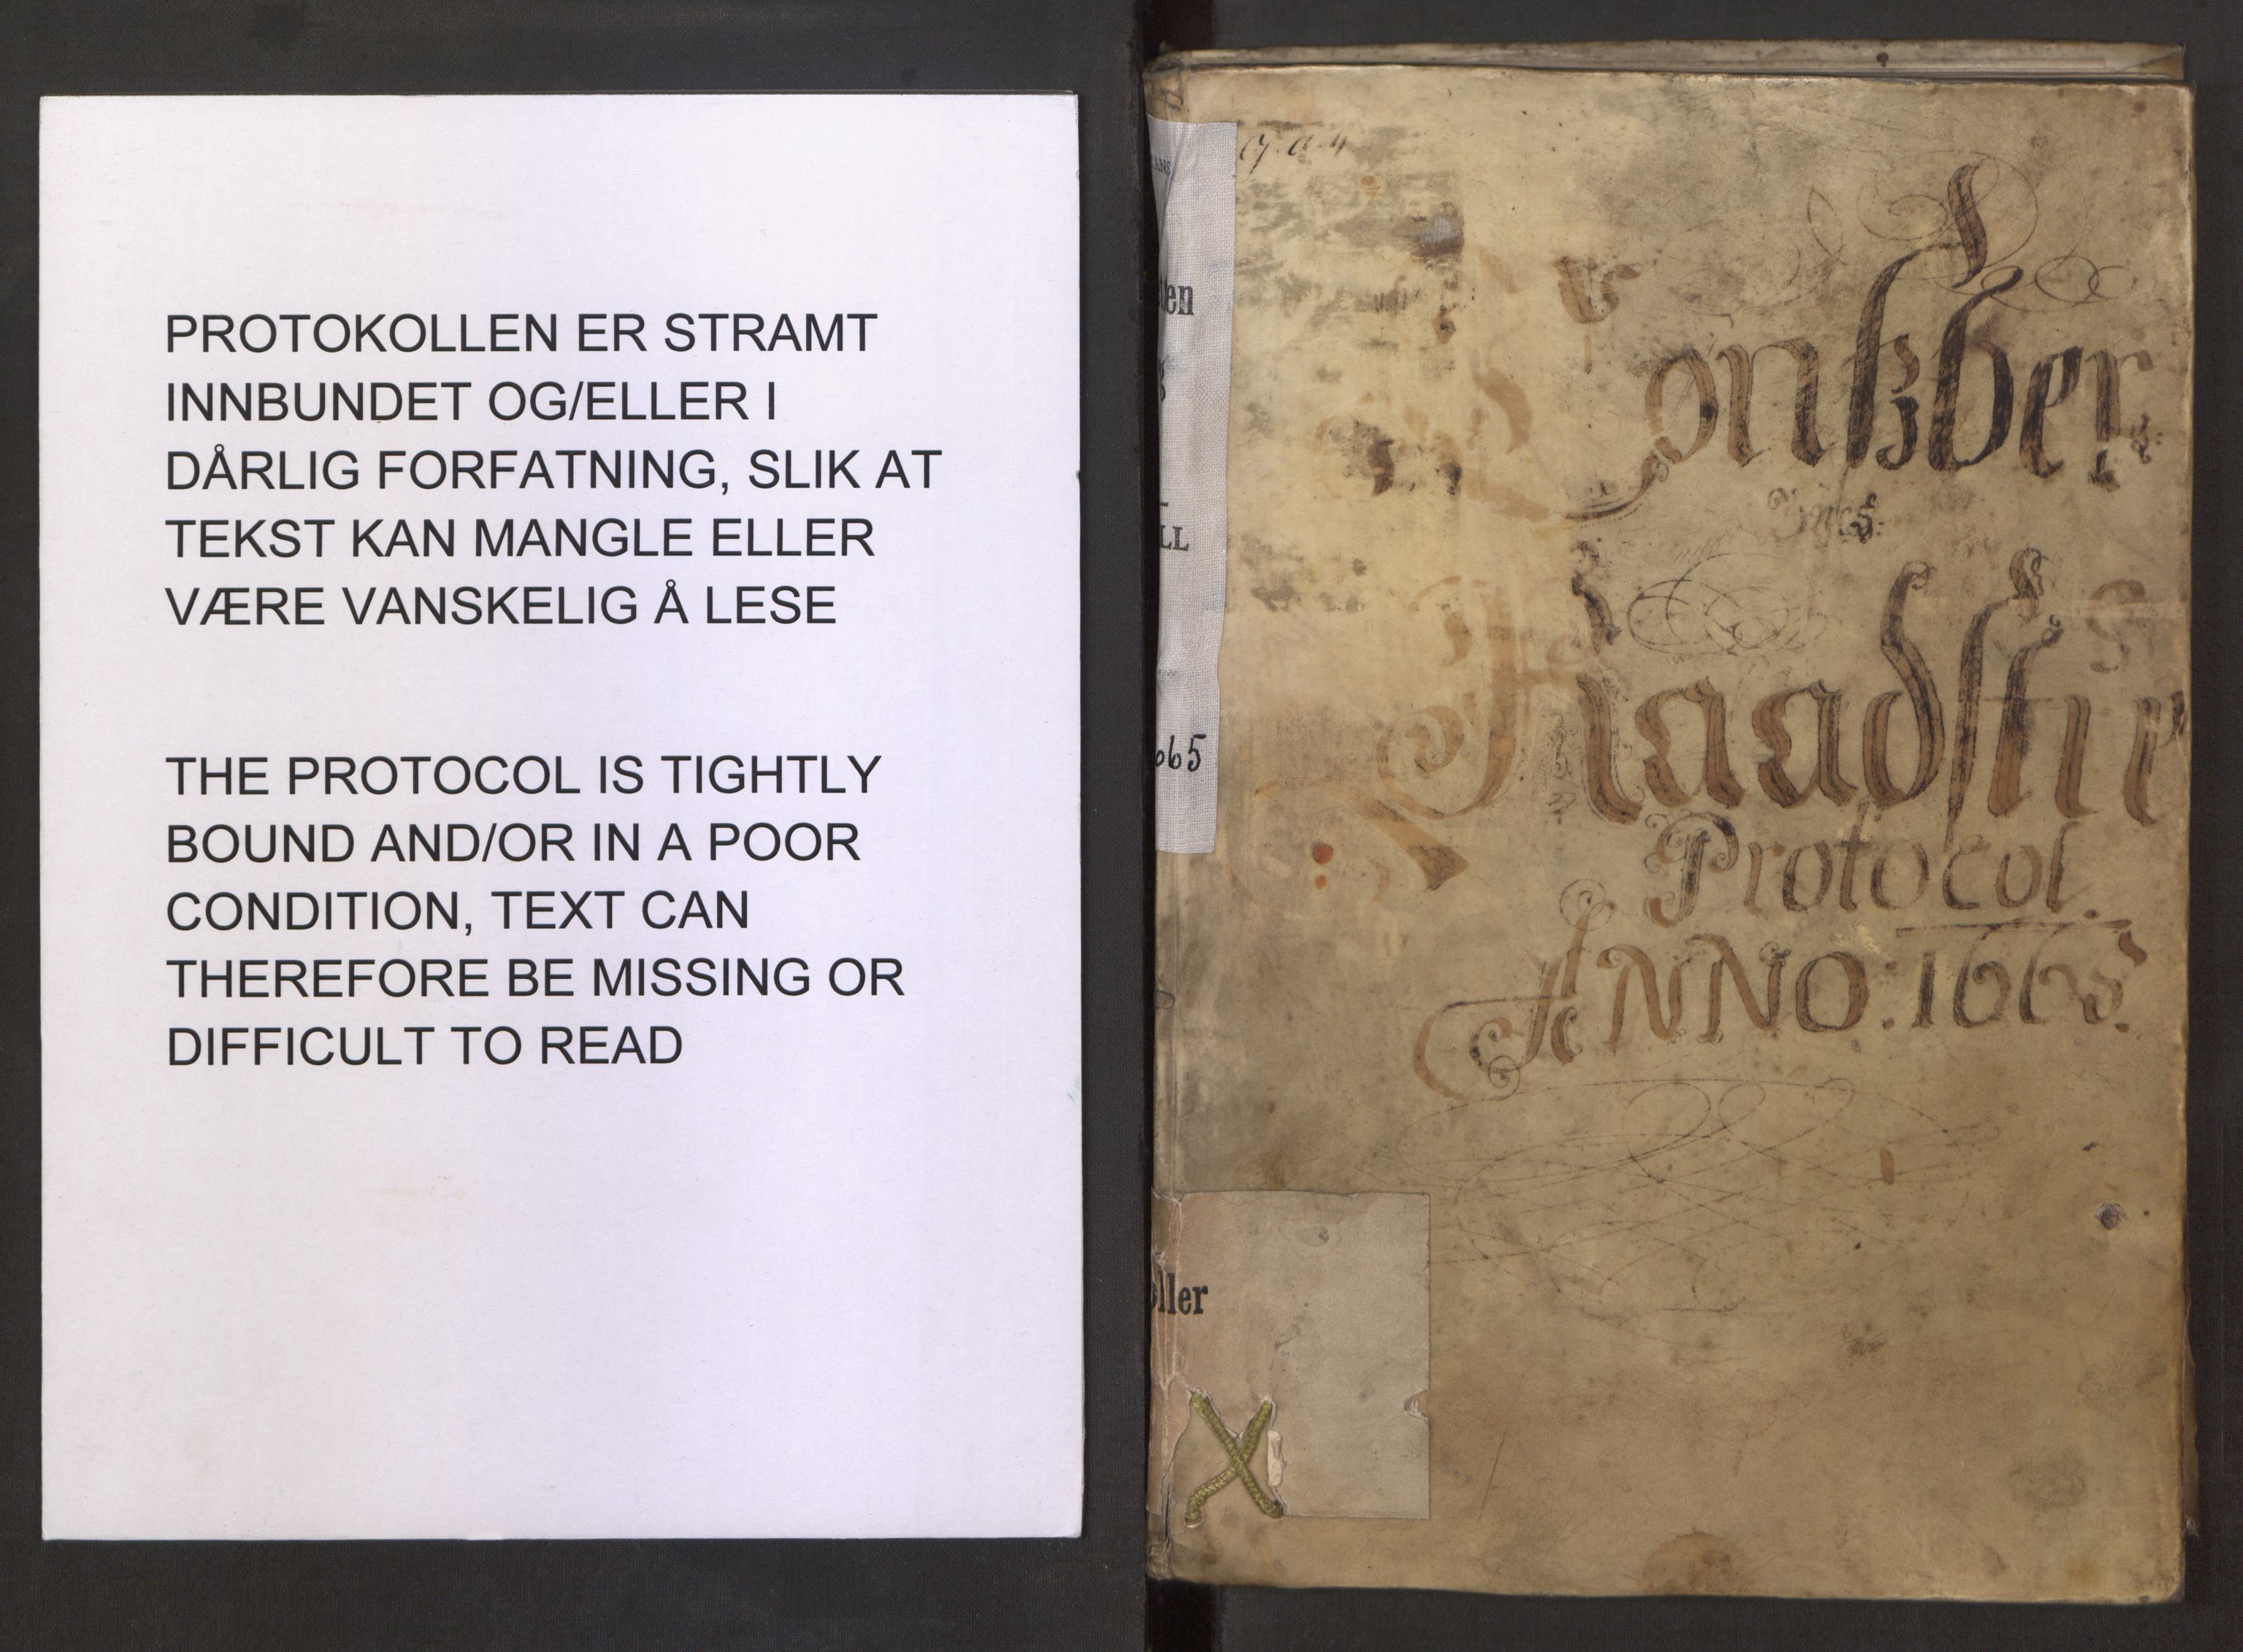 PROTOKOLLEN ER STRAMT
INNBUNDET OG/ELLER I
DÅRLIG FORFATNING, SLIK AT
TEKST KAN MANGLE ELLER
VÆRE VANSKELIG Å LESE
THE PROTOCOL IS TIGHTLY
BOUND AND/OR IN A POOR
CONDITION, TEXT CAN
THEREFORE BE MISSING OR
DIFFICULT TO READ
onßber
Raadstu
Protocol.
ANNO: 1665.
ten
LL
665
oller